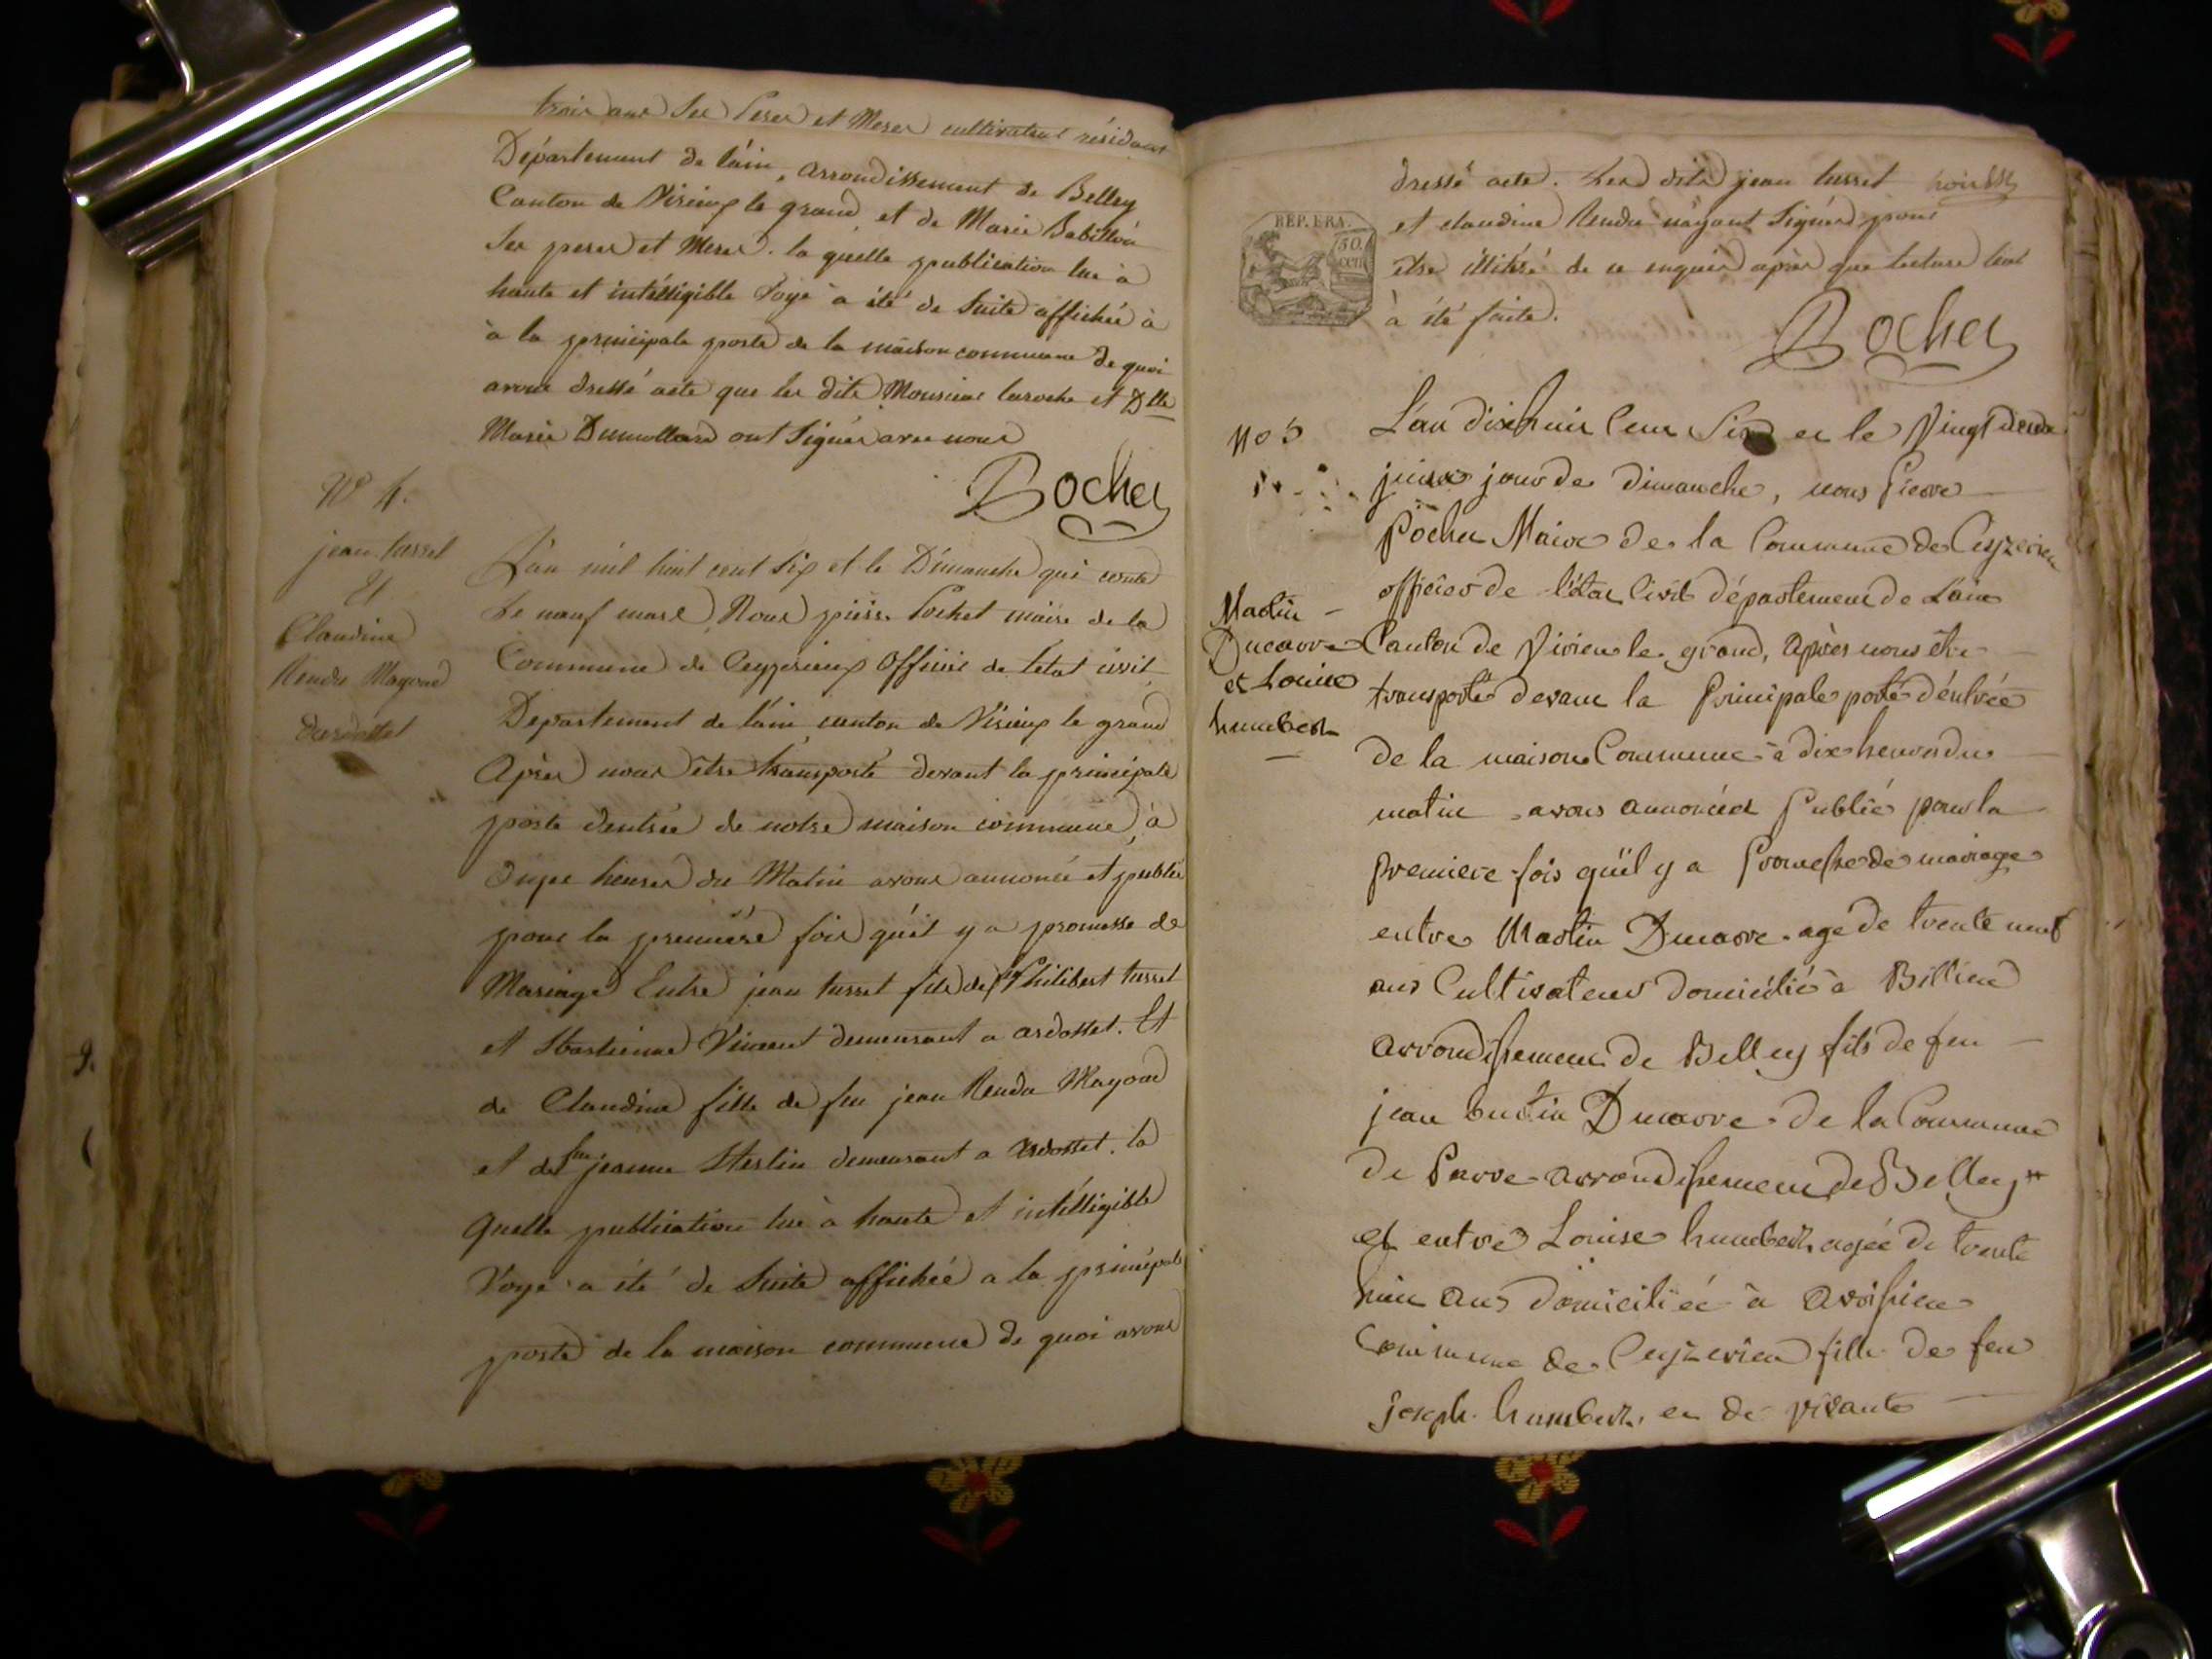 trois ans ses Peres et Meres cultivateur résidant
Département de l'ain, arrondissement de Belley
Canton de Virieux le grand et de Marie Babillon
ses peres et Meres. la quelle publication lue à
haute et intélligible voye à été de suite affichée à
à la principale porte de la maison commune de quoi
avons dressé acte que les dits Monsieur laroche et Dlle
Marie Dumollard ont signés avec nous
Pochet
N° 4.
jean tusset
Et
Claudine
Rendu Mayoud
L'an mil huit cent six et le Dimanche qui conte
Le neuf mars Nous pierre Pochet maire de la
Commune de Ceyzerieux Officier de l'etat civil
Departement de l'ain canton de Virieux le grand
Après nous être transporté devant la principale
porte d'entrée de notre maison commune, à
onze heures du Matin avons annoncé et publié
pour la première fois qu'il y a promesse de
Mariage Entre jean tusset fils de Philibert tusset
et Vincent demeurant a ardosset. Et
de Claudine fille de feu jean Rendu Mayoud
et de feu jeanne demeurant a ardosset. la
quelle publication lue à haute et intélligible
Voye a été de suite affichée a la principale
porte de la maison commune de quoi avons
dressé acte. Les dits jean tusset
REP. FRA.
50.
CEN
et claudine Rendu n'ayant signés pour
être illitéré de ce enquis après que lecture leur
à été faite.
Pochet
N° 5
L'an dix huit cent six et le Vingt deux
juin jour de dimanche, nous Pierre
Pochet Maire de la Commune de Ceyzerieu
officier de l'état Civil département de L'ain
Martin
Ducarre
et Louise
humbert
Canton de Virieu le grand, après nous être
transporté devant la Principale porte d'entrée
de la maison Commune à dix heures du
matin avons annoncé et Publié pour la
premiere fois qu'il y a Promesse de mariage
entre Martin Ducarre age de trente neuf
ans Cultivateur domicilié à Billieu
arrondissement de Belley fils de feu
jean Ducarre de la Commune
de Parve arrondissement de Belley
et entre Louise humbert agée de trente
huit ans domiciliée à avoisieu
Commune de Ceyzerieu fille de feu
joseph humbert et de vivante